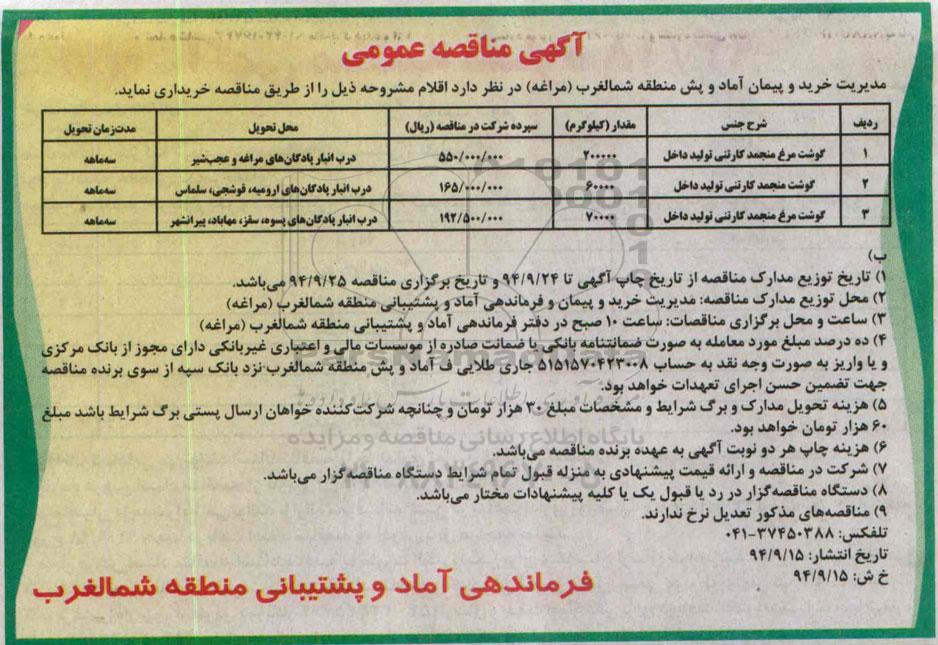 آگهی مناقصه عمومی
مدیریت خرید و پیمان آماد و پش منطقه شمالغرب (مراغه) در نظر دارد اقلام مشروحه ذیل را از طریق مناقصه خریداری نماید.
ردیف شرح جنس مقدار (کیلوگرم) سپرده شرکت در مناقصه (ریال) محل تحویل مدت‌زمان تحویل
۱ گوشت مرغ منجمد کارتنی تولید داخل ۲۰۰۰۰۰ ۵۵۰/۰۰۰/۰۰۰ درب انبار پادگان‌های مراغه و عجب‌شیر سه‌ماهه
۲ گوشت منجمد کارتنی تولید داخل ۶۰۰۰۰ ۱۶۵/۰۰۰/۰۰۰ درب انبار پادگان‌های ارومیه، قوشجی، سلماس سه‌ماهه
۳ گوشت مرغ منجمد کارتنی تولید داخل ۷۰۰۰۰ ۱۹۲/۵۰۰/۰۰۰ درب انبار پادگان‌های پسوه، سقز، مهاباد، پیرانشهر سه‌ماهه
ب)
۱) تاریخ توزیع مدارک مناقصه از تاریخ چاپ آگهی تا ۹۴/۹/۲۴ و تاریخ برگزاری مناقصه ۹۴/۹/۲۵ می‌باشد.
۲) محل توزیع مدارک مناقصه: مدیریت خرید و پیمان و فرماندهی آماد و پشتیبانی منطقه شمالغرب (مراغه)
۳) ساعت و محل برگزاری مناقصات: ساعت ۱۰ صبح در دفتر فرماندهی آماد و پشتیبانی منطقه شمالغرب (مراغه)
۴) ده درصد مبلغ مورد معامله به صورت ضمانتنامه بانکی یا ضمانت صادره از موسسات مالی و اعتباری غیربانکی دارای مجوز از بانک مرکزی
و یا واریز به صورت وجه نقد به حساب ۵۱۵۱۵۷۰۴۲۳۰۰۸ جاری طلایی ف آماد و پش منطقه شمالغرب نزد بانک سپه از سوی برنده مناقصه
جهت تضمین حسن اجرای تعهدات خواهد بود.
۵) هزینه تحویل مدارک و برگ شرایط و مشخصات مبلغ ۳۰ هزار تومان و چنانچه شرکت‌کننده خواهان ارسال پستی برگ شرایط باشد مبلغ
۶۰ هزار تومان خواهد بود.
۶) هزینه چاپ هر دو نوبت آگهی به عهده برنده مناقصه می‌باشد.
۷) شرکت در مناقصه و ارائه قیمت پیشنهادی به منزله قبول تمام شرایط دستگاه مناقصه‌گزار می‌باشد.
۸) دستگاه مناقصه‌گزار در رد یا قبول یک یا کلیه پیشنهادات مختار می‌باشد.
۹) مناقصه‌های مذکور تعدیل نرخ ندارند.
تلفکس: ۳۷۴۵۰۳۸۸-۰۴۱
تاریخ انتشار: ۹۴/۹/۱۵
خ ش: ۹۴/۹/۱۵
فرماندهی آماد و پشتیبانی منطقه شمالغرب
پایگاه اطلاع رسانی مناقصه و مزایده